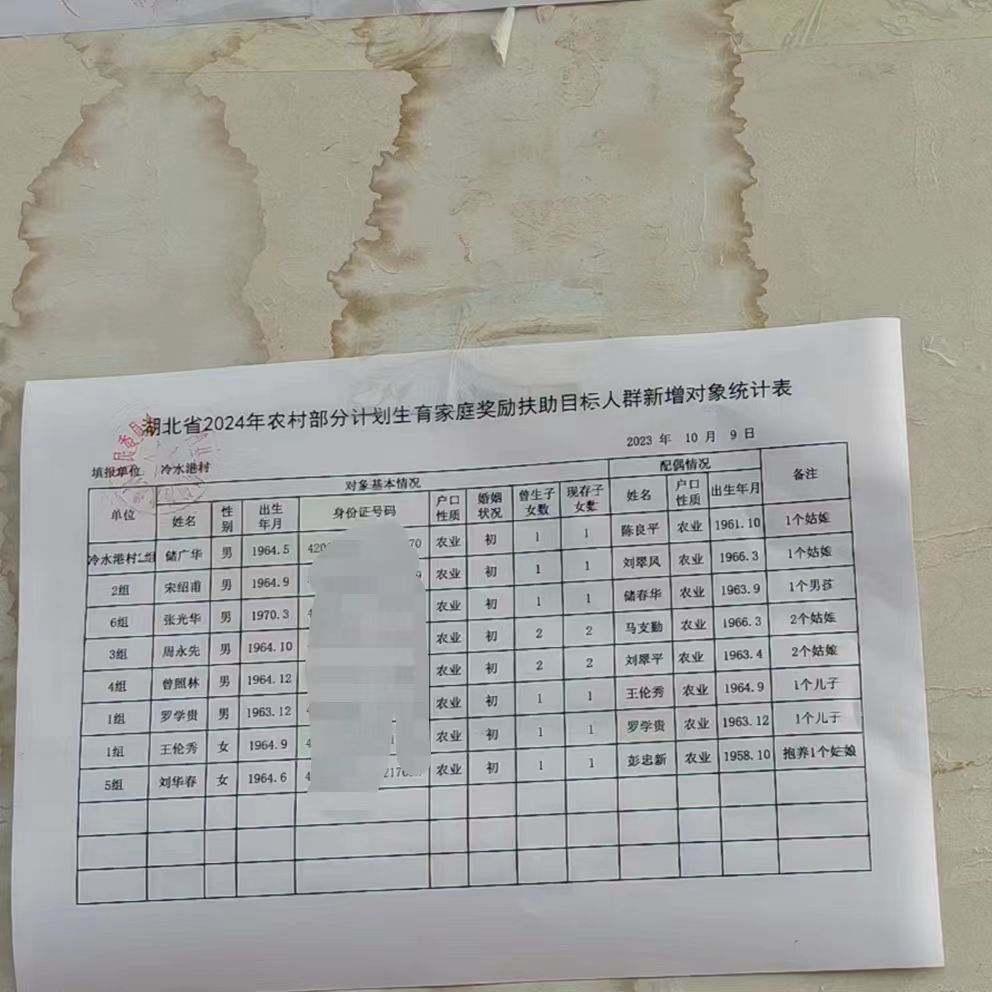 湖北省2024年农村部分计划生育家庭奖励扶助目标人群新增对象统计表
2023 年 10 月 9 日
填报单位 冷水港村
单位 对象基本情况 配偶情况 备注
姓名 性别 出生年月 身份证号码 户口性质 婚姻状况 曾生子女数 现存子女数 姓名 户口性质 出生年月
冷水港村2组 储广华 男 1964.5 420 70 农业 初 1 1 陈良平 农业 1961.10 1个姑娘
2组 宋绍甫 男 1964.9 农业 初 1 1 刘翠凤 农业 1966.3 1个姑娘
6组 张光华 男 1970.3 4 农业 初 1 1 储春华 农业 1963.9 1个男孩
3组 周永先 男 1964.10 农业 初 2 2 马支勤 农业 1966.3 2个姑娘
4组 曾照林 男 1964.12 农业 初 2 2 刘翠平 农业 1963.4 2个姑娘
1组 罗学贵 男 1963.12 农业 初 1 1 王伦秀 农业 1964.9 1个儿子
1组 王伦秀 女 1964.9 4 农业 初 1 1 罗学贵 农业 1963.12 1个儿子
5组 刘华春 女 1964.6 4 217 农业 初 1 1 彭忠新 农业 1958.10 抱养1个姑娘